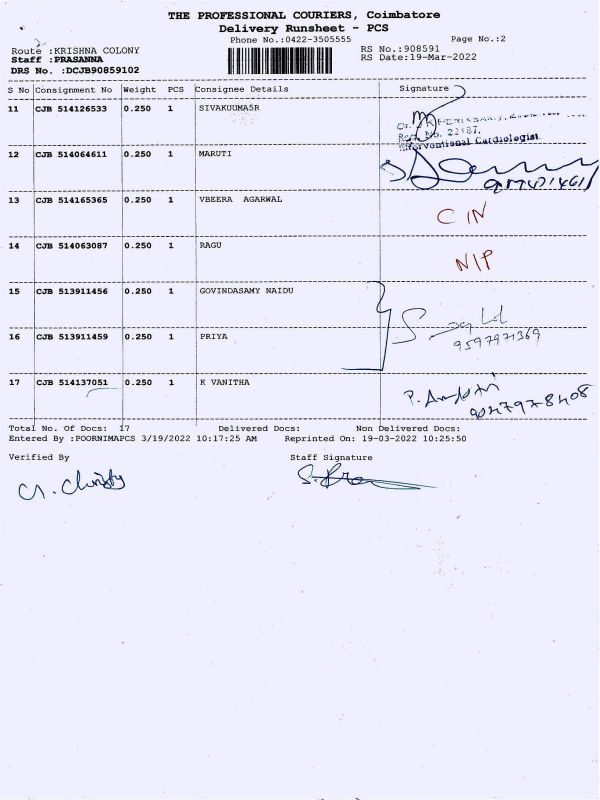 THE PROFESSIONAL COURIERS, Coimbatore
Delivery Runsheet - PCS
Phone No.:0422-3505555 Page No.:2
Route :KRISHNA COLONY RS No.:908591
Staff :PRASANNA RS Date:19-Mar-2022
DRS No. :DCJB90859102
S No Consignment No Weight PCS Consignee Details Signature
11 CJB 514126533 0.250 1 SIVAKUUMA5R
Reg. No. 22187.
Interventional Cardiologist
12 CJB 514064611 0.250 1 MARUTI
13 CJB 514165365 0.250 1 VBEERA AGARWAL
C IN
14 CJB 514063087 0.250 1 RAGU
N/P
15 CJB 513911456 0.250 1 GOVINDASAMY NAIDU
16 CJB 513911459 0.250 1 PRIYA
9597971369
17 CJB 514137051 0.250 1 K VANITHA
Total No. Of Docs: 17 Delivered Docs: Non Delivered Docs:
Entered By :POORNIMAPCS 3/19/2022 10:17:25 AM Reprinted On: 19-03-2022 10:25:50
Verified By Staff Signature
G. Christy